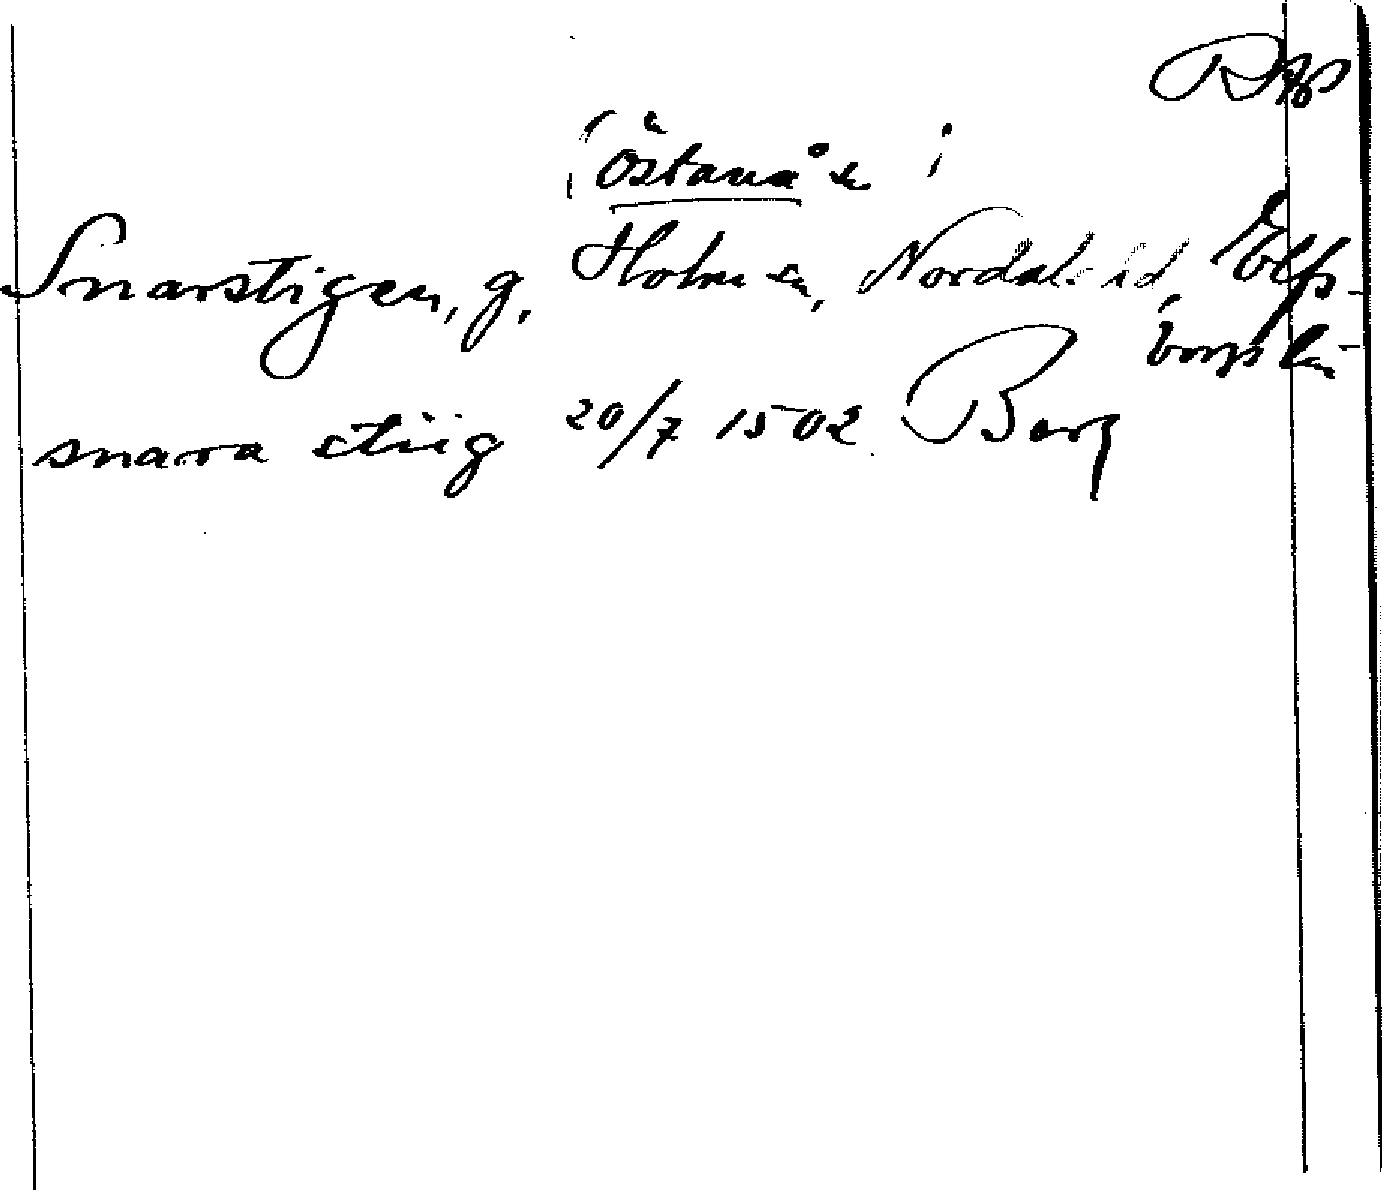 (östanå i
Snarstigen, g. Holm sn, Nordals hd, Elfs-
borgs län
snara stiig 20/7 1502 Berg